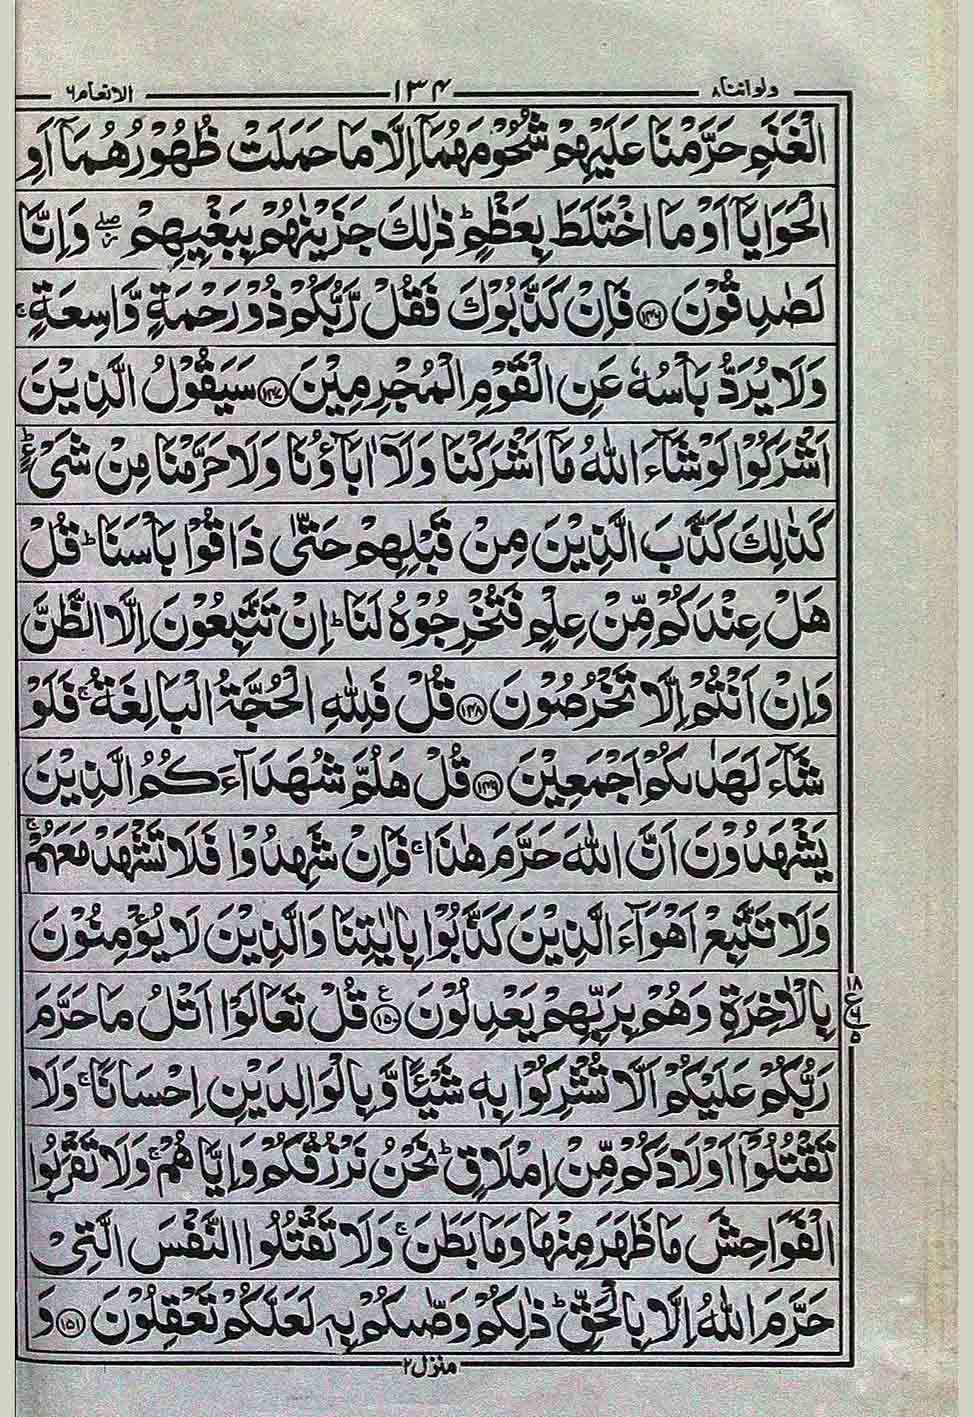 ولواننا ۸ ۱۳۴ الانعام ۶
الْغَنَمِ حَرَّمْنَا عَلَيْهِمْ شُحُوْمَهُمَاۤ اِلَّا مَا حَمَلَتْ ظُهُوْرُهُمَاۤ اَوِ
الْحَوَايَاۤ اَوْ مَا اخْتَلَطَ بِعَظْمٍ ؕ ذٰلِكَ جَزَيْنٰهُمْ بِبَغْيِهِمْ ۖ وَاِنَّا
لَصٰدِقُوْنَ ﴿۱۴۶﴾ فَاِنْ كَذَّبُوْكَ فَقُلْ رَّبُّكُمْ ذُوْ رَحْمَةٍ وَّاسِعَةٍ ۚ
وَلَا يُرَدُّ بَاْسُهٗ عَنِ الْقَوْمِ الْمُجْرِمِيْنَ ﴿۱۴۷﴾ سَيَقُوْلُ الَّذِيْنَ
اَشْرَكُوْا لَوْ شَآءَ اللّٰهُ مَاۤ اَشْرَكْنَا وَلَاۤ اٰبَآؤُنَا وَلَا حَرَّمْنَا مِنْ شَیْءٍ ؕ
كَذٰلِكَ كَذَّبَ الَّذِيْنَ مِنْ قَبْلِهِمْ حَتّٰى ذَاقُوْا بَاْسَنَا ؕ قُلْ
هَلْ عِنْدَكُمْ مِّنْ عِلْمٍ فَتُخْرِجُوْهُ لَنَا ؕ اِنْ تَتَّبِعُوْنَ اِلَّا الظَّنَّ
وَاِنْ اَنْتُمْ اِلَّا تَخْرُصُوْنَ ﴿۱۴۸﴾ قُلْ فَلِلّٰهِ الْحُجَّةُ الْبَالِغَةُ ۚ فَلَوْ
شَآءَ لَهَدٰىكُمْ اَجْمَعِيْنَ ﴿۱۴۹﴾ قُلْ هَلُمَّ شُهَدَآءَكُمُ الَّذِيْنَ
يَشْهَدُوْنَ اَنَّ اللّٰهَ حَرَّمَ هٰذَا ۚ فَاِنْ شَهِدُوْا فَلَا تَشْهَدْ مَعَهُمْ ۚ
وَلَا تَتَّبِعْ اَهْوَآءَ الَّذِيْنَ كَذَّبُوْا بِاٰيٰتِنَا وَالَّذِيْنَ لَا يُؤْمِنُوْنَ
بِالْاٰخِرَةِ وَهُمْ بِرَبِّهِمْ يَعْدِلُوْنَ ﴿۱۵۰﴾ ع قُلْ تَعَالَوْا اَتْلُ مَا حَرَّمَ
۱۸
ع ۶
۵
رَبُّكُمْ عَلَيْكُمْ اَلَّا تُشْرِكُوْا بِهٖ شَيْئًا وَّبِالْوَالِدَيْنِ اِحْسَانًا ۚ وَلَا
تَقْتُلُوْۤا اَوْلَادَكُمْ مِّنْ اِمْلَاقٍ ؕ نَحْنُ نَرْزُقُكُمْ وَاِيَّاهُمْ ۚ وَلَا تَقْرَبُوا
الْفَوَاحِشَ مَا ظَهَرَ مِنْهَا وَمَا بَطَنَ ۚ وَلَا تَقْتُلُوا النَّفْسَ الَّتِیْ
حَرَّمَ اللّٰهُ اِلَّا بِالْحَقِّ ؕ ذٰلِكُمْ وَصّٰىكُمْ بِهٖ لَعَلَّكُمْ تَعْقِلُوْنَ ﴿۱۵۱﴾ وَ
منزل ۲